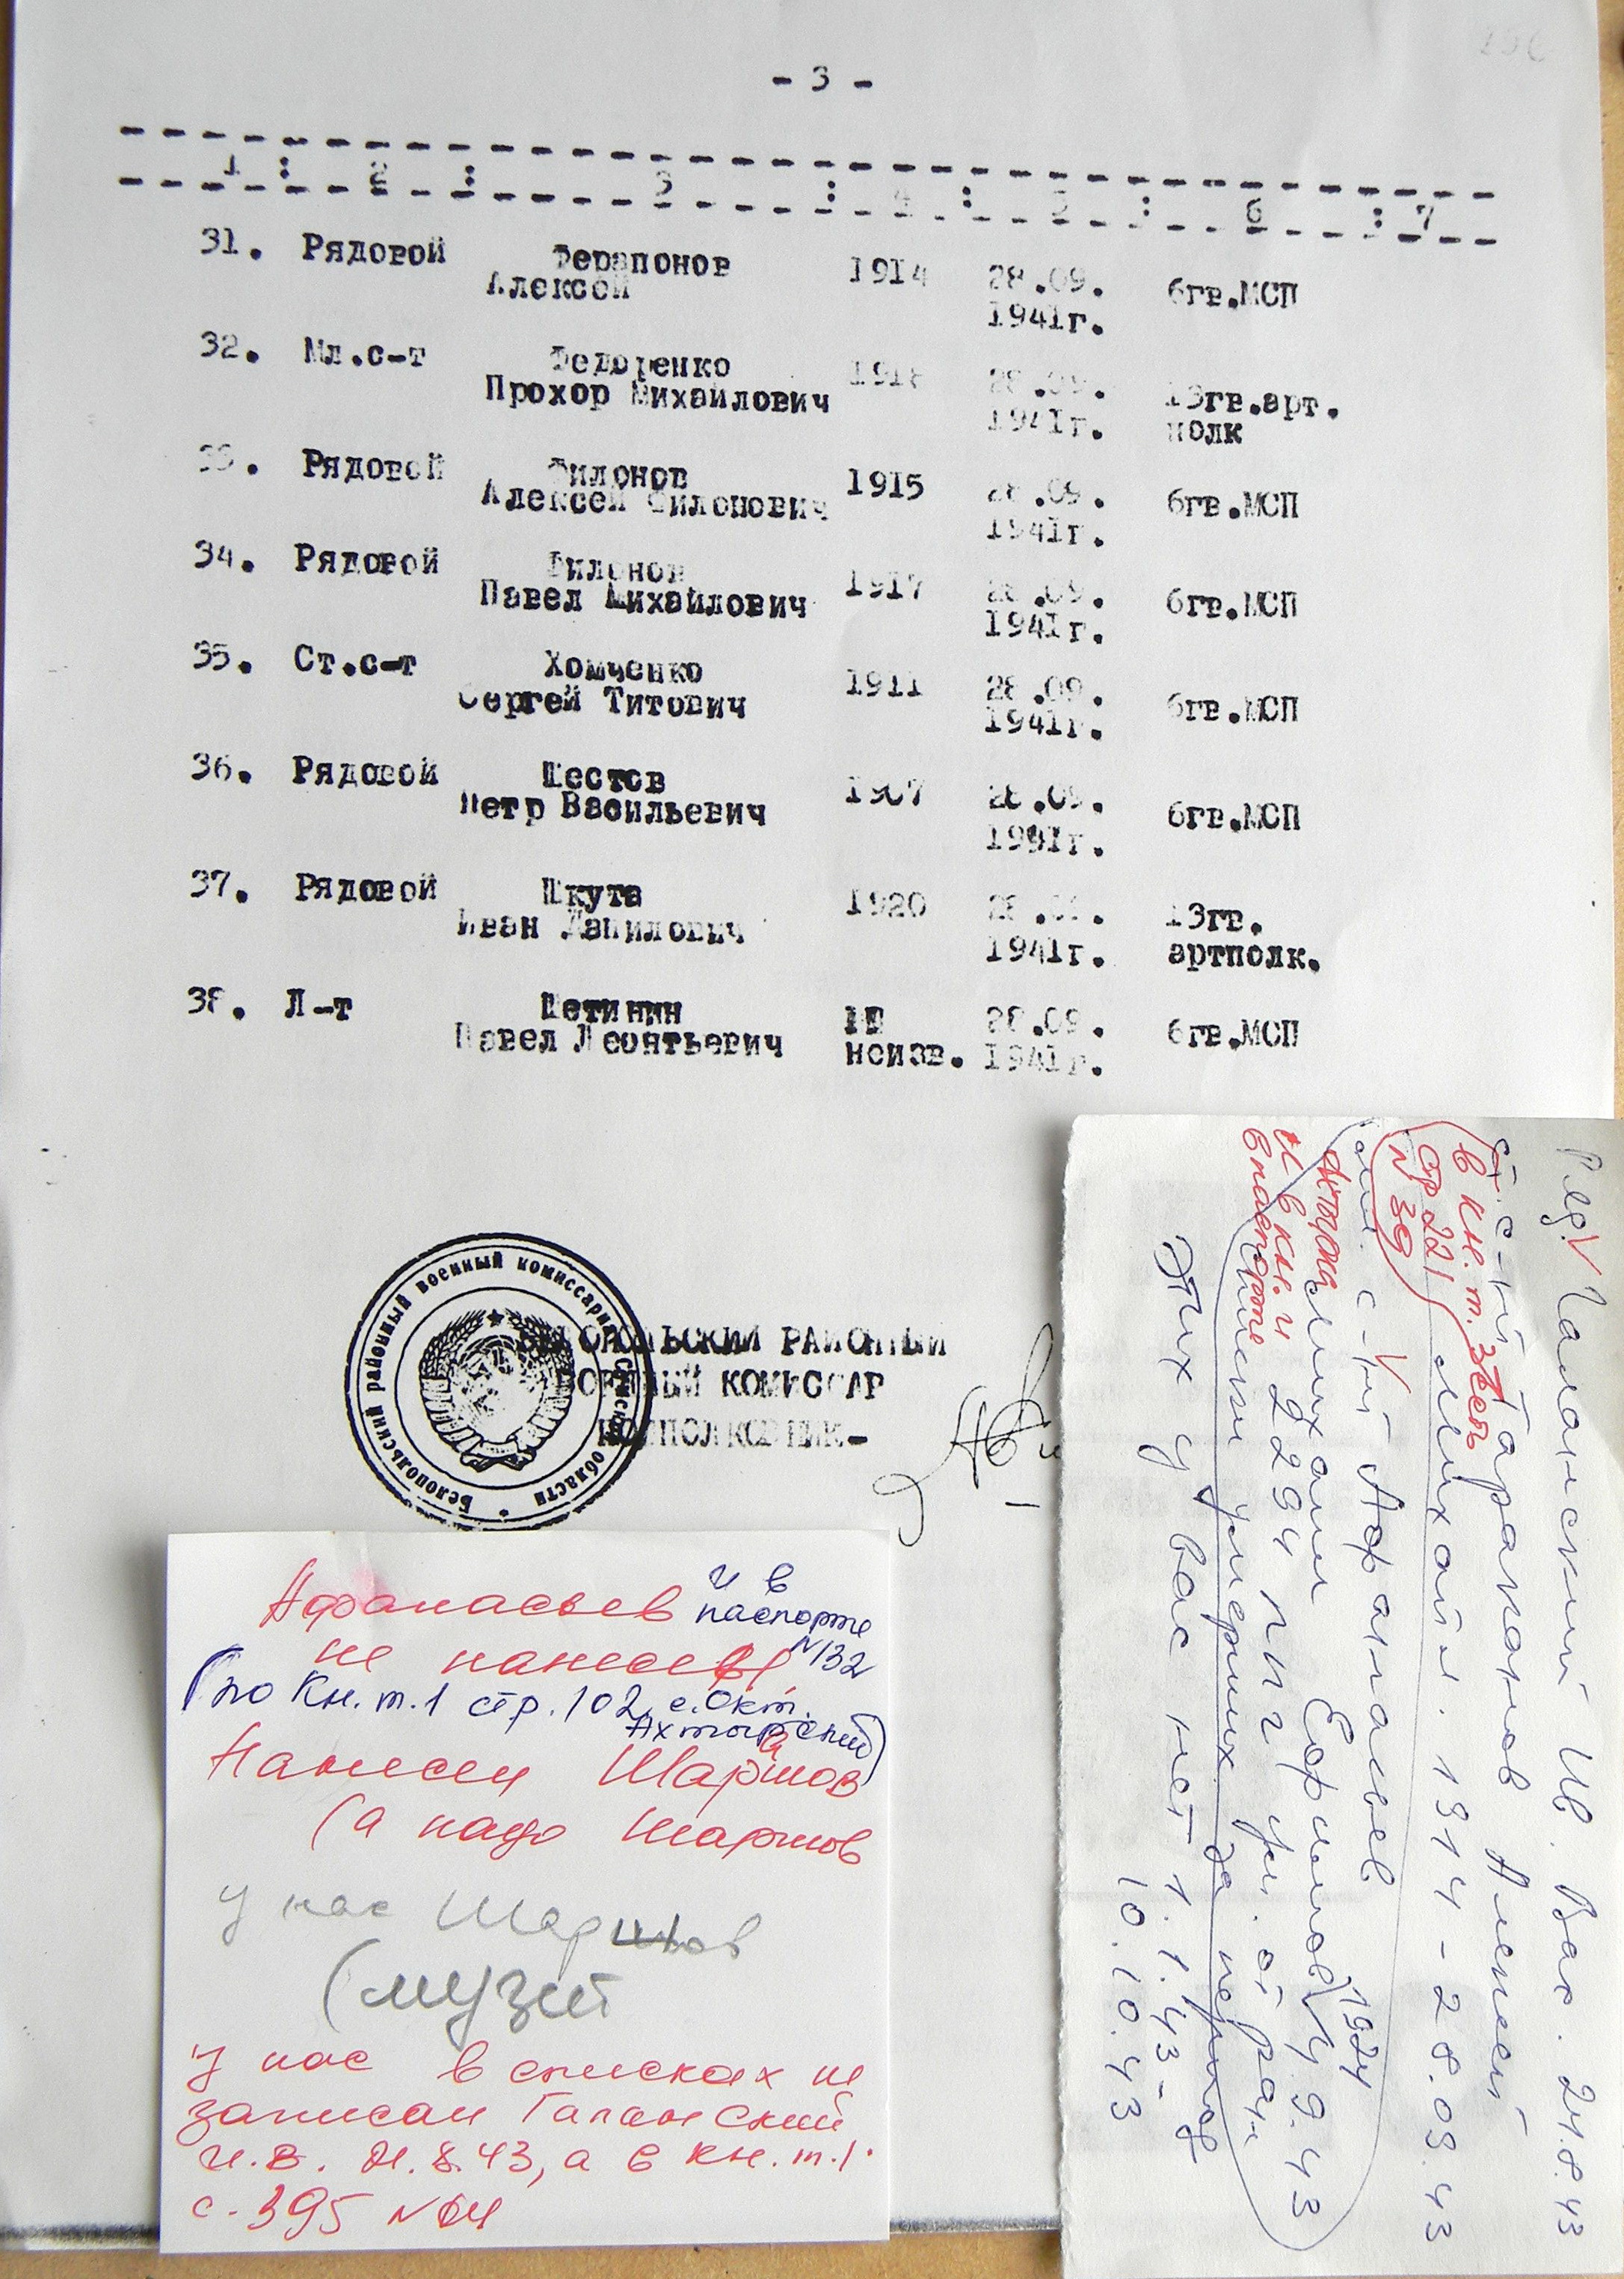 - 3 -
1 : 2 : 3 : 4 : 5 : 6 : 7
31. Рядовой Ферапонов 1914 28.09. 6гв.МСП
Алексей 1941г.
32. Мл.с-т Федоренко 1918 28.09. 13гв.арт.
Прохор Михайлович 1941г. полк
33. Рядовой Филонов 1915 28.09. 6гв.МСП
Алексей Филонович 1941г.
34. Рядовой Филонов 1917 28.09. 6гв.МСП
Павел Михайлович 1941г.
35. Ст.с-т Хомченко 1911 28.09. 6гв.МСП
Сергей Титович 1941г.
36. Рядовой Шестов 1907 28.09. 6гв.МСП
Петр Васильевич 1991г.
37. Рядовой Шкута 1920 28.09. 13гв.
Иван Данилович 1941г. артполк.
38. Л-т Щетинин 28.09. 6гв.МСП
Павел Леонтьевич неизв. 1941г.
БЕЛОПОЛЬСКИЙ РАЙОННЫЙ
ВОЕННЫЙ КОМИССАР
ПОДПОЛКОВНИК-
Белопольский районный военный комиссариат Сумской области
Афанасьев и в
паспорте
не нанесен №132
(по Кн.т.1 стр.102, с.Окт.
Ахтырский)
Нанесен Шаршов
(а надо Шаршов
у нас Шаршов
(музей
у нас в списках не
записан Галанский
И.В. 24.8.43, а в кн.т.1.
с.395 №64
Ряд. Галанский Ив. Вас. 24.8.43
Ст. с-нт Тарапонов Алексей
в кн.т. есть
стр 221 Михайл. 1914 - 28.09.43
№ 39
с-нт Афанасьев
Ахтырка Михаил Ефимов 1924 4.9.43
и в кн. и 2294 ППГ ум. от ран
в паспорте
списки умерших за период
Этих у вас нет 1.1.43-
10.10.43